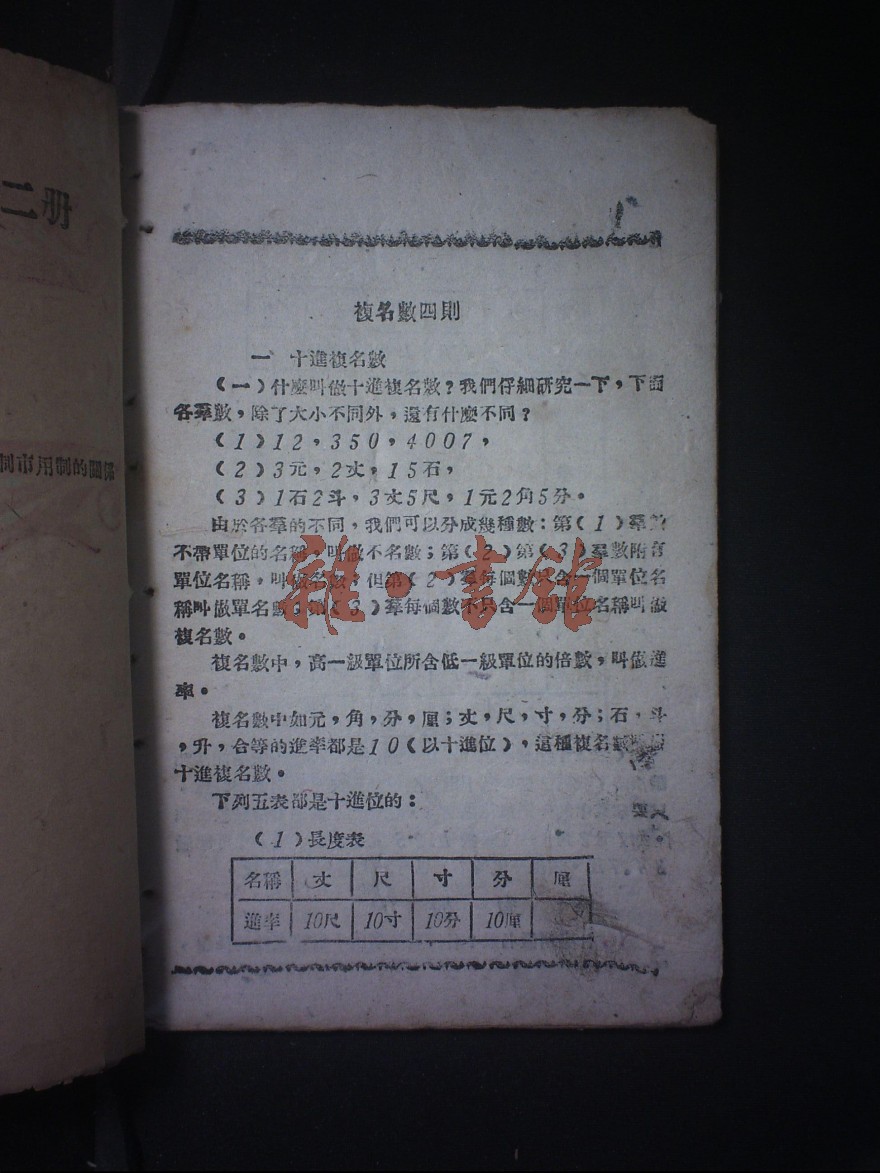 二册
制市用制的關係
1
複名數四則
一 十進複名數
(一)什麼叫做十進複名數?我們仔細研究一下,下面
各羣數,除了大小不同外,還有什麼不同?
(1)12,350,4007,
(2)3元,2丈,15石,
(3)1石2斗,3丈5尺,1元2角5分。
由於各羣的不同,我們可以分成幾種數:第(1)羣數
不帶單位的名稱,叫做不名數;第(2)第(3)羣數附有
單位名稱,叫做名數;但第(2)羣每個數只含一個單位名
稱叫做單名數;第(3)羣每個數不只含一個單位名稱叫做
複名數。
複名數中,高一級單位所含低一級單位的倍數,叫做進
率。
複名數中如元,角,分,厘;丈,尺,寸,分;石,斗
,升,合等的進率都是10(以十進位),這種複名數
十進複名數。
下列五表都是十進位的:
(1)長度表
名稱 丈 尺 寸 分 厘
進率 10尺 10寸 10分 10厘
雜·書館